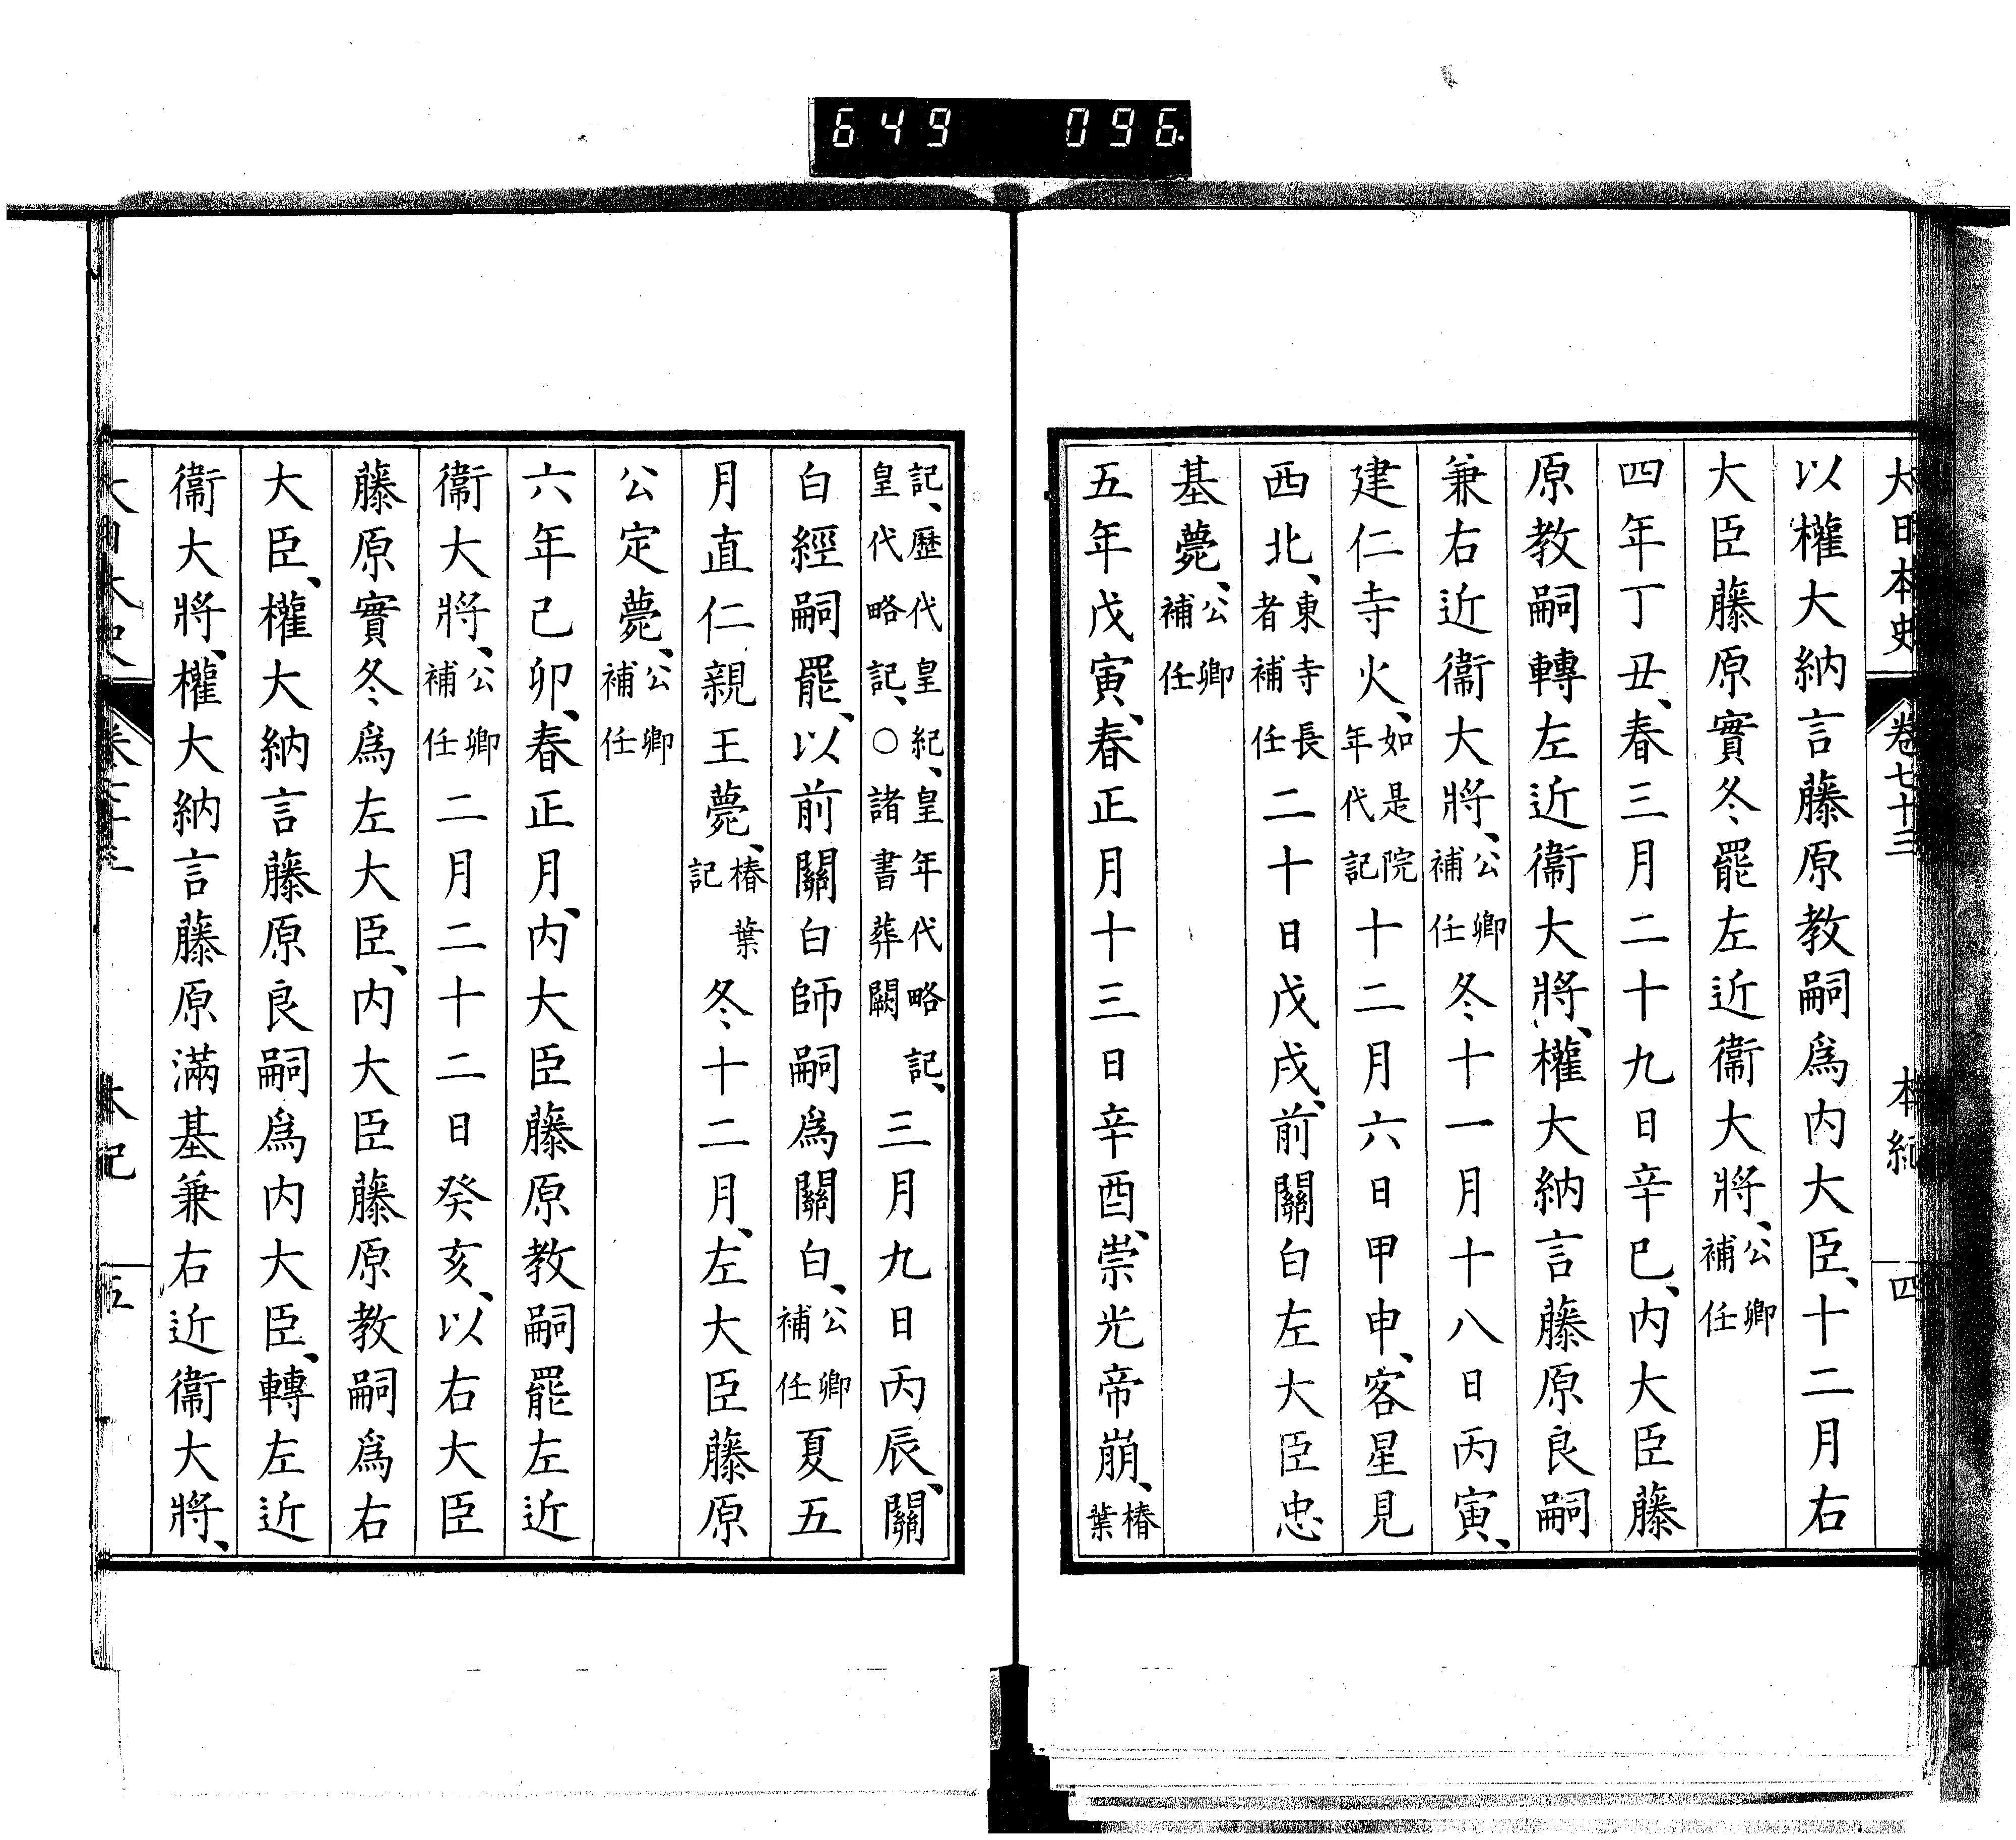 649 096.
大日本史 卷七十三 本紀 四
以權大納言藤原教嗣爲内大臣、十二月右
大臣藤原實冬罷左近衞大將、公卿補任
四年丁丑、春三月二十九日辛巳、内大臣藤
原教嗣轉左近衞大將、權大納言藤原良嗣
兼右近衞大將、公卿補任冬十一月十八日丙寅、
建仁寺火、如是院年代記十二月六日甲申、客星見
西北、東寺長者補任二十日戊戌、前關白左大臣忠
基薨、公卿補任
五年戊寅、春正月十三日辛酉、崇光帝崩、椿葉
記、歷代皇紀、皇年代略記、皇代略記、○諸書葬闕三月九日丙辰、關
白經嗣罷、以前關白師嗣爲關白、公卿補任夏五
月直仁親王薨、椿葉記冬十二月、左大臣藤原
公定薨、公卿補任
六年己卯、春正月、内大臣藤原教嗣罷左近
衞大將、公卿補任二月二十二日癸亥、以右大臣
藤原實冬爲左大臣、内大臣藤原教嗣爲右
大臣、權大納言藤原良嗣爲内大臣、轉左近
衞大將、權大納言藤原滿基兼右近衞大將、